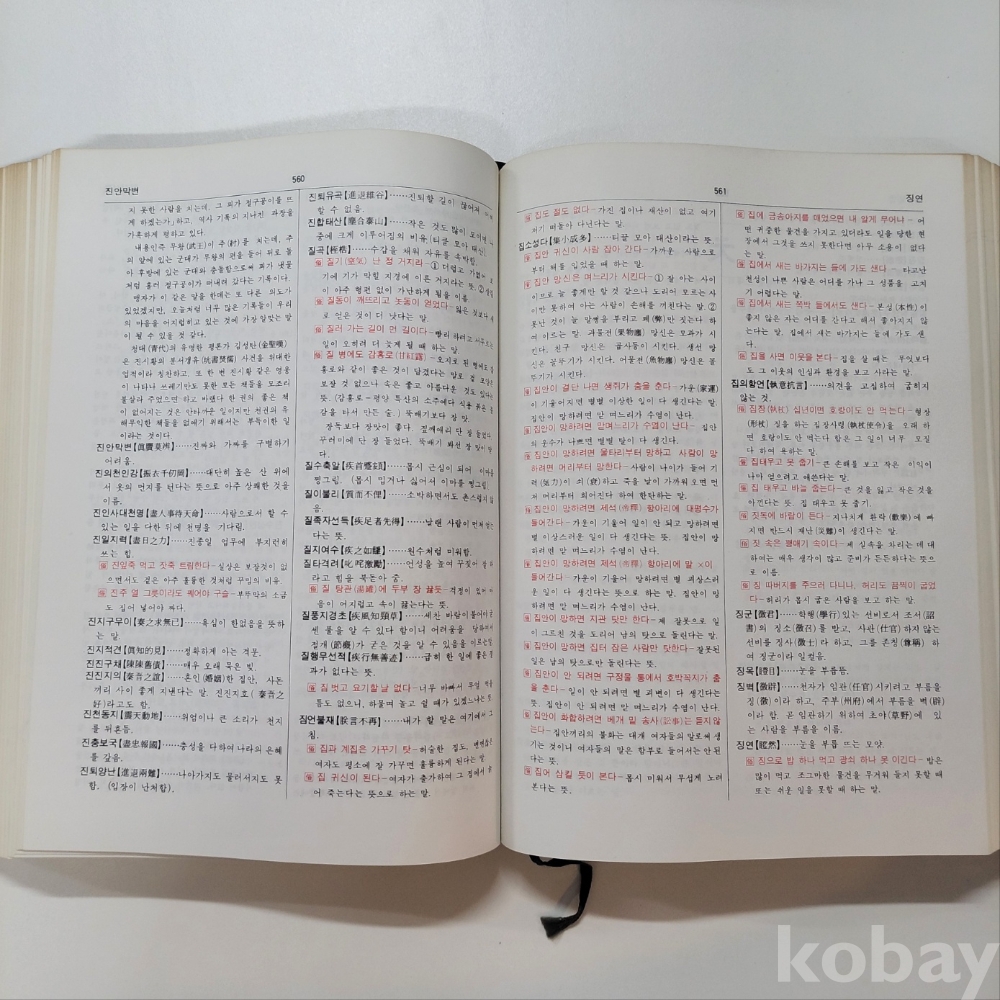 진안막변
560
지 못한 사람을 치는데, 그 의가 정구공이를 뜨
게 하겠는가」하고, 역사 기록의 지나친 과장을
가혹하게 평하고 있다.
내용인즉 무왕(武王)이 주(紂)를 치는데, 주
의 앞에 있는 군대가 무왕의 편을 들어 뒤로 돌
아 후방에 있는 군대와 충돌함으로써 피가 냇물
처럼 흘러 절구공이가 떠내려 갔다는 기록이다.
맹자가 이 같은 말을 한데는 또 다른 의도가
있었겠지만, 오늘처럼 너무 많은 기록들이 우리
의 마음을 어지럽히고 있는 것에 가장 알맞는 말
이 될 수 있을 것 같다.
청대(青代)의 유명한 평론가 김성탄(金聖嘆)
은 진시황의 분서갱유(坑書焚儒) 사건을 위대한
업적이라 칭찬하고, 또 한 번 진시황 같은 영웅
이 나타나 쓰레기만도 못한 모든 책들을 모조리
불살라 주었으면 하고 바랬다. 한 권의 좋은 책
이 없어지는 것은 안타까운 일이지만 천권의 유
해무익한 책들을 없애기 위해서는 부득이한 일
이라는 것이다.
진안막변【眞贋莫辨】……진짜와 가짜를 구별하기
어려움.
진의천인강【振衣千仞岡】……대단히 높은 산 위에
서 옷의 먼지를 턴다는 뜻으로 아주 상쾌한 것을
이름.
진인사대천명【盡人事待天命】……사람으로서 할 수
있는 일을 다한 뒤에 천명을 기다림.
진일지력【盡日之力】……진종일 업무에 부지런히
쓰는 힘.
진잎죽 먹고 잣죽 트림한다-실상은 보잘것이 없
으면서도 겉은 아주 훌륭한 것처럼 꾸밈의 비유.
진주 열 그릇이라도 꿰어야 구슬-부뚜막의 소금
도 집어 넣어야 짜다.
진지구무이【秦之求無已】……욕심이 한없음을 뜻하
는 말.
진지적견【眞知的見】……정확하게 아는 격문.
진진구채【陳陳舊債】……매우 오래 묵은 빚.
진진지의【秦晋之誼】……혼인(婚姻)한 집안, 사돈
끼리 사이 좋게 지낸다는 말. 진진지호(秦晋之
好)라고도 함.
진천동지【震天動地】……위엄이나 큰 소리가 천지
를 뒤흔듬.
진충보국【盡忠報國】……충성을 다하여 나라의 은혜
를 갚음.
진퇴양난【進退兩難】……나아가지도 물러서지도 못
함. (입장이 난처함).
진퇴유곡【進退維谷】……진퇴할 길이 끊어져
할 수 없음.
진합태산【塵合泰山】……작은 것도 많이 모이면
중에 크게 이루어짐의 비유(티끌 모아 태산)
질곡【桎梏】……수갑을 채워 자유를 속박함.
질기 난 정 거지라-① 더럽고 가없어
에 기가 막힐 지경에 이른 거지라는 뜻.
아주 형편 없이 가난하게 됨을 이름
질동이 깨뜨리고 놋동이 얻었다-잃은 것보다
에 얻은 것이 더 낫다는 말.
질러 가는 길이 먼 길이다-빨리 하려고
일이 오히려 더 늦게 될 때 하는 말
질 병에도 감홍로(甘紅露)-호로 된 병에도
홍로와 같이 좋은 것이 담겼다는 말로 겉 모양은
보잘 것 없으나 속은 좋고 아름다운 것도
뜻. (감홍로=평양 특산의 소주에다 식용 붉은
감을 타서 만든 술.) 뚝배기보다 장 맛.
장독보다 장맛이 좋다 질그릇에 단 장 들었다
꾸러미에 단 장 들었다. 뚝배기 봐선 장 맛이
다.
질수축알【疾首蹙頞】……몹시 근심이 되어 이마를
찡그림. (몹시 밉거나 싫어서 이마를 찡그림).
질이불리【質而不俚】……소박하면서도 촌스럽지
음.
질족자선득【疾足者先得】……날랜 사람이 먼저
다는 뜻.
질지여수【疾之如讐】……원수처럼 미워함.
질타격려【叱咤激勵】……언성을 높여 꾸짖어
라고 힘을 북돋아 줌.
질 탕관(湯罐)에 두부 장 끓듯-걱정이 있어
음이 어지럽고 속이 끓는다는 뜻.
질풍지경초【疾風知頸草】……세찬 바람이 불어야
센 풀을 알 수 있다 함이니 어려움을 당해서
절개(節槪)가 굳은 것을 알 수 있음을 이르는
질행무선적【疾行無善迹】……급히 한 일에 좋은
과가 없다는 뜻.
짐벗고 요기할 날 없다-너무 바빠서 무엇 먹을
틈도 없으니, 하물며 놀고 쉴 때가 있겠느냐는
짐언불재【朕言不再】……내가 할 말은 여기에서
침.
집과 계집은 가꾸기 탓-허술한 집도, 변변찮은
여자도 평소에 잘 가꾸면 훌륭하게 된다는 말.
집 귀신이 된다-여자가 출가하여 그 집에서
어 죽는다는 뜻으로 하는 말.
561
징연
집도 절도 없다-가진 집이나 재산이 없고 여기
저기 떠돌아 다닌다는 말.
집소성다【集小成多】……티끌 모아 태산이라는 뜻.
집안 귀신이 사람 잡아 간다-가까운 사람으로
부터 해를 입었을 때 하는 말.
집안 망신은 며느리가 시킨다-① 잘 아는 사이
이므로 늘 좋게만 할 것 같으나 도리어 모르는 사
이만 못하여 아는 사람이 손해를 끼친다는 말. ②
못난 것이 늘 말썽을 부리고 폐(弊)만 짓는다 하
여 이르는 말. 과물전(果物廛) 망신은 모과가 시
킨다. 친구 망신은 곱사등이 시킨다. 생선 망
신은 꼴뚜기가 시킨다. 어물전(魚物廛) 망신은 꼴
뚜기가 시킨다.
집안이 결단 나면 생쥐가 춤을 춘다-가운(家運)
이 기울어지면 별별 이상한 일이 다 생긴다는 말.
집안이 망하려면 맏 며느리가 수염이 난다.
집안이 망하려면 맏며느리가 수염이 난다-집안
의 운수가 나쁘면 별별 탈이 다 생긴다.
집안이 망하려면 울타리부터 망하고 사람이 망
하려면 머리부터 망한다-사람이 나이가 들어 기
력(氣力)이 쇠(衰)하고 죽을 날이 가까워 오면 먼
저 머리부터 희어진다 하여 한탄하는 말.
집안이 망하려면 제석(帝釋) 항아리에 대평수가
들어간다-가운이 기울어 일이 안 되고 망하려면
별 이상스러운 일이 다 생긴다는 뜻. 집안이 망
하려면 맏 며느리가 수염이 난다.
집안이 망하려면 제석(帝釋) 항아리에 말 ×이
들어간다-가운이 기울어 망하려면 별 괴상스러
운 일이 다 생긴다는 뜻으로 하는 말. 집안이 망
하려면 맏 며느리가 수염이 난다.
집안이 망하면 지관 탓만 한다-제 잘못으로 일
이 그르친 것을 도리어 남의 탓으로 돌린다는 말.
집안이 망하면 집터 잡은 사람만 탓한다-잘못된
일은 남의 탓으로만 돌린다는 말.
집안이 안 되려면 구정물 통에서 호박꼭지가 춤
을 춘다-일이 안 되려면 별 괴변이 다 생긴다는
뜻. 집안이 망하려면 맏 며느리가 수염이 난다.
집안이 화합하려면 베개 밑 송사는 듣지않
는다-집안끼리의 불화는 대개 여자들의 말로써 생
기는 것이니 여자들의 말은 함부로 들어서는 안된
다는 뜻.
집어 삼킬 듯이 본다-몹시 미워서 무섭게 노려
본다는 뜻.
집에 금송아지를 매었으면 내 알게 무어냐-어
떤 귀중한 물건을 가지고 있더라도 일을 당한 현
장에서 그것을 쓰지 못한다면 아무 소용이 없다
는 말.
집에서 새는 바가지는 들에 가도 샌다-타고난
천성이 나쁜 사람은 어디를 가나 그 성품을 고치
기 어렵다는 말.
집에서 새는 쪽박 들에서도 샌다-본심(本性)이
좋지 않은 자는 어디를 간다고 해서 좋아지지 않
는다는 말. 집에서 새는 바가지는 들에 가도 샌
다.
집을 사면 이웃을 본다-집을 살 때는 무엇보다
도 그 이웃의 인심과 환경을 보고 사라는 말.
집의항언【執意抗言】……의견을 고집하여 굽히지
않는 것.
집장(執杖) 십년이면 호랑이도 안 먹는다-형장
(刑杖) 질을 하는 집장사령(執杖使令)을 오래 하
면 호랑이도 안 먹는다 함은 그 일이 너무 모질
다 하여 욕하는 말.
집태우고 못 줍기-큰 손해를 보고 작은 이익이
나마 얻으려고 애쓴다는 말.
집 태우고 바늘 줍는다-큰 것을 잃고 작은 것을
아낀다는 뜻. 집 태우고 못 줍기.
짓독에 바람이 든다-지나치게 환락(歡樂)에 빠
지면 반드시 재난(災難)이 생긴다는 말.
짓 속은 쨍얘기 속이다-제 실속을 차리는 데 대
하여는 매우 생각이 많고 준비가 든든하다는 뜻으
로 이름.
짐 따버지를 주으러 다니나, 허리도 끔찍이 굽었
다-허리가 몹시 굽은 사람을 보고 하는 말.
징군【徵君】……학행(學行)이 있는 선비로서 조서(詔
書)의 징소(徵召)를 받고, 사관(仕官)하지 않는
선비를 징사(徵士)라 하고, 그를 존칭(尊稱) 하
여 징군이라 일컬음.
징목【瞪目】……눈을 부릅뜸.
징벽【徵辟】……천자가 임관(任官) 시키려고 부름을
징(徵)이라 하고, 주부(州府)에서 부름을 벽(辟)
이라 함. 곧 임관하기 위하여 초야(草野)에 있
는 사람을 부름을 이름.
징연……눈을 부릅 뜨는 모양.
짚으로 밤 하나 먹고 광쇠 하나 못 이긴다-밥은
많이 먹고 조그마한 물건을 무거워 들지 못할 때
또는 쉬운 일을 못할 때 하는 말.
kobay